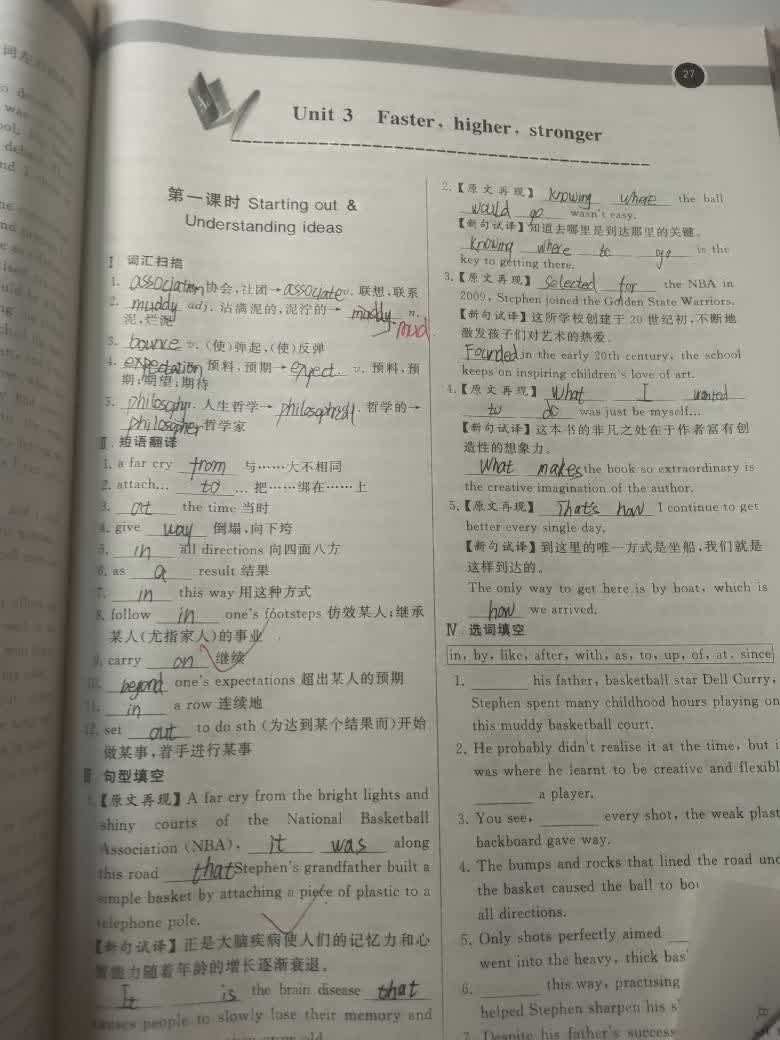 27
Unit 3 Faster, higher, stronger
第一课时 Starting out &
Understanding ideas
Ⅰ 词汇扫描
1. association 协会,社团→associate v. 联想,联系
2. muddy adj. 沾满泥的,泥泞的→ muddy n.
泥,烂泥 mud
3. bounce v. (使)弹起,(使)反弹
4. expectation 预料,预期→expect v. 预料,预
期;期望;期待
5. 人生哲学→ 哲学的→
philosopher 哲学家
Ⅱ. 短语翻译
1. a far cry from 与……大不相同
2. attach... to ... 把……绑在……上
3. at the time 当时
4. give way 倒塌,向下垮
5. in all directions 向四面八方
6. as a result 结果
7. in this way 用这种方式
8. follow in one's footsteps 仿效某人;继承
某人(尤指家人)的事业
9. carry on 继续
10. beyond one's expectations 超出某人的预期
11. in a row 连续地
12. set out to do sth (为达到某个结果而)开始
做某事,着手进行某事
Ⅲ 句型填空
【原文再现】A far cry from the bright lights and
shiny courts of the National Basketball
Association (NBA), it was along
this road that Stephen's grandfather built a
simple basket by attaching a piece of plastic to a
telephone pole.
【新句试译】正是大脑疾病使人们的记忆力和心
智能力随着年龄的增长逐渐衰退。
It is the brain disease that
causes people to slowly lose their memory and
2.【原文再现】 knowing where the ball
would go wasn't easy.
【新句试译】知道去哪里是到达那里的关键。
Knowing where to go is the
key to getting there.
3.【原文再现】 Selected for the NBA in
2009, Stephen joined the Golden State Warriors.
【新句试译】这所学校创建于 20 世纪初,不断地
激发孩子们对艺术的热爱。
Founded in the early 20th century, the school
keeps on inspiring children's love of art.
4.【原文再现】 What I wanted
to do was just be myself...
【新句试译】这本书的非凡之处在于作者富有创
造性的想象力。
What makes the book so extraordinary is
the creative imagination of the author.
5.【原文再现】 That's how I continue to get
better every single day.
【新句试译】到这里的唯一方式是坐船,我们就是
这样到达的。
The only way to get here is by boat, which is
how we arrived.
Ⅳ 选词填空
in, by, like, after, with, as, to, up, of, at, since
1. ______ his father, basketball star Dell Curry,
Stephen spent many childhood hours playing on
this muddy basketball court.
2. He probably didn't realise it at the time, but i
was where he learnt to be creative and flexibl
______ a player.
3. You see, ______ every shot, the weak plast
backboard gave way.
4. The bumps and rocks that lined the road und
the basket caused the ball to bou
all directions.
5. Only shots perfectly aimed
went into the heavy, thick bas
6. ______ this way, practising
helped Stephen sharpen his s
7. Despite his father's success